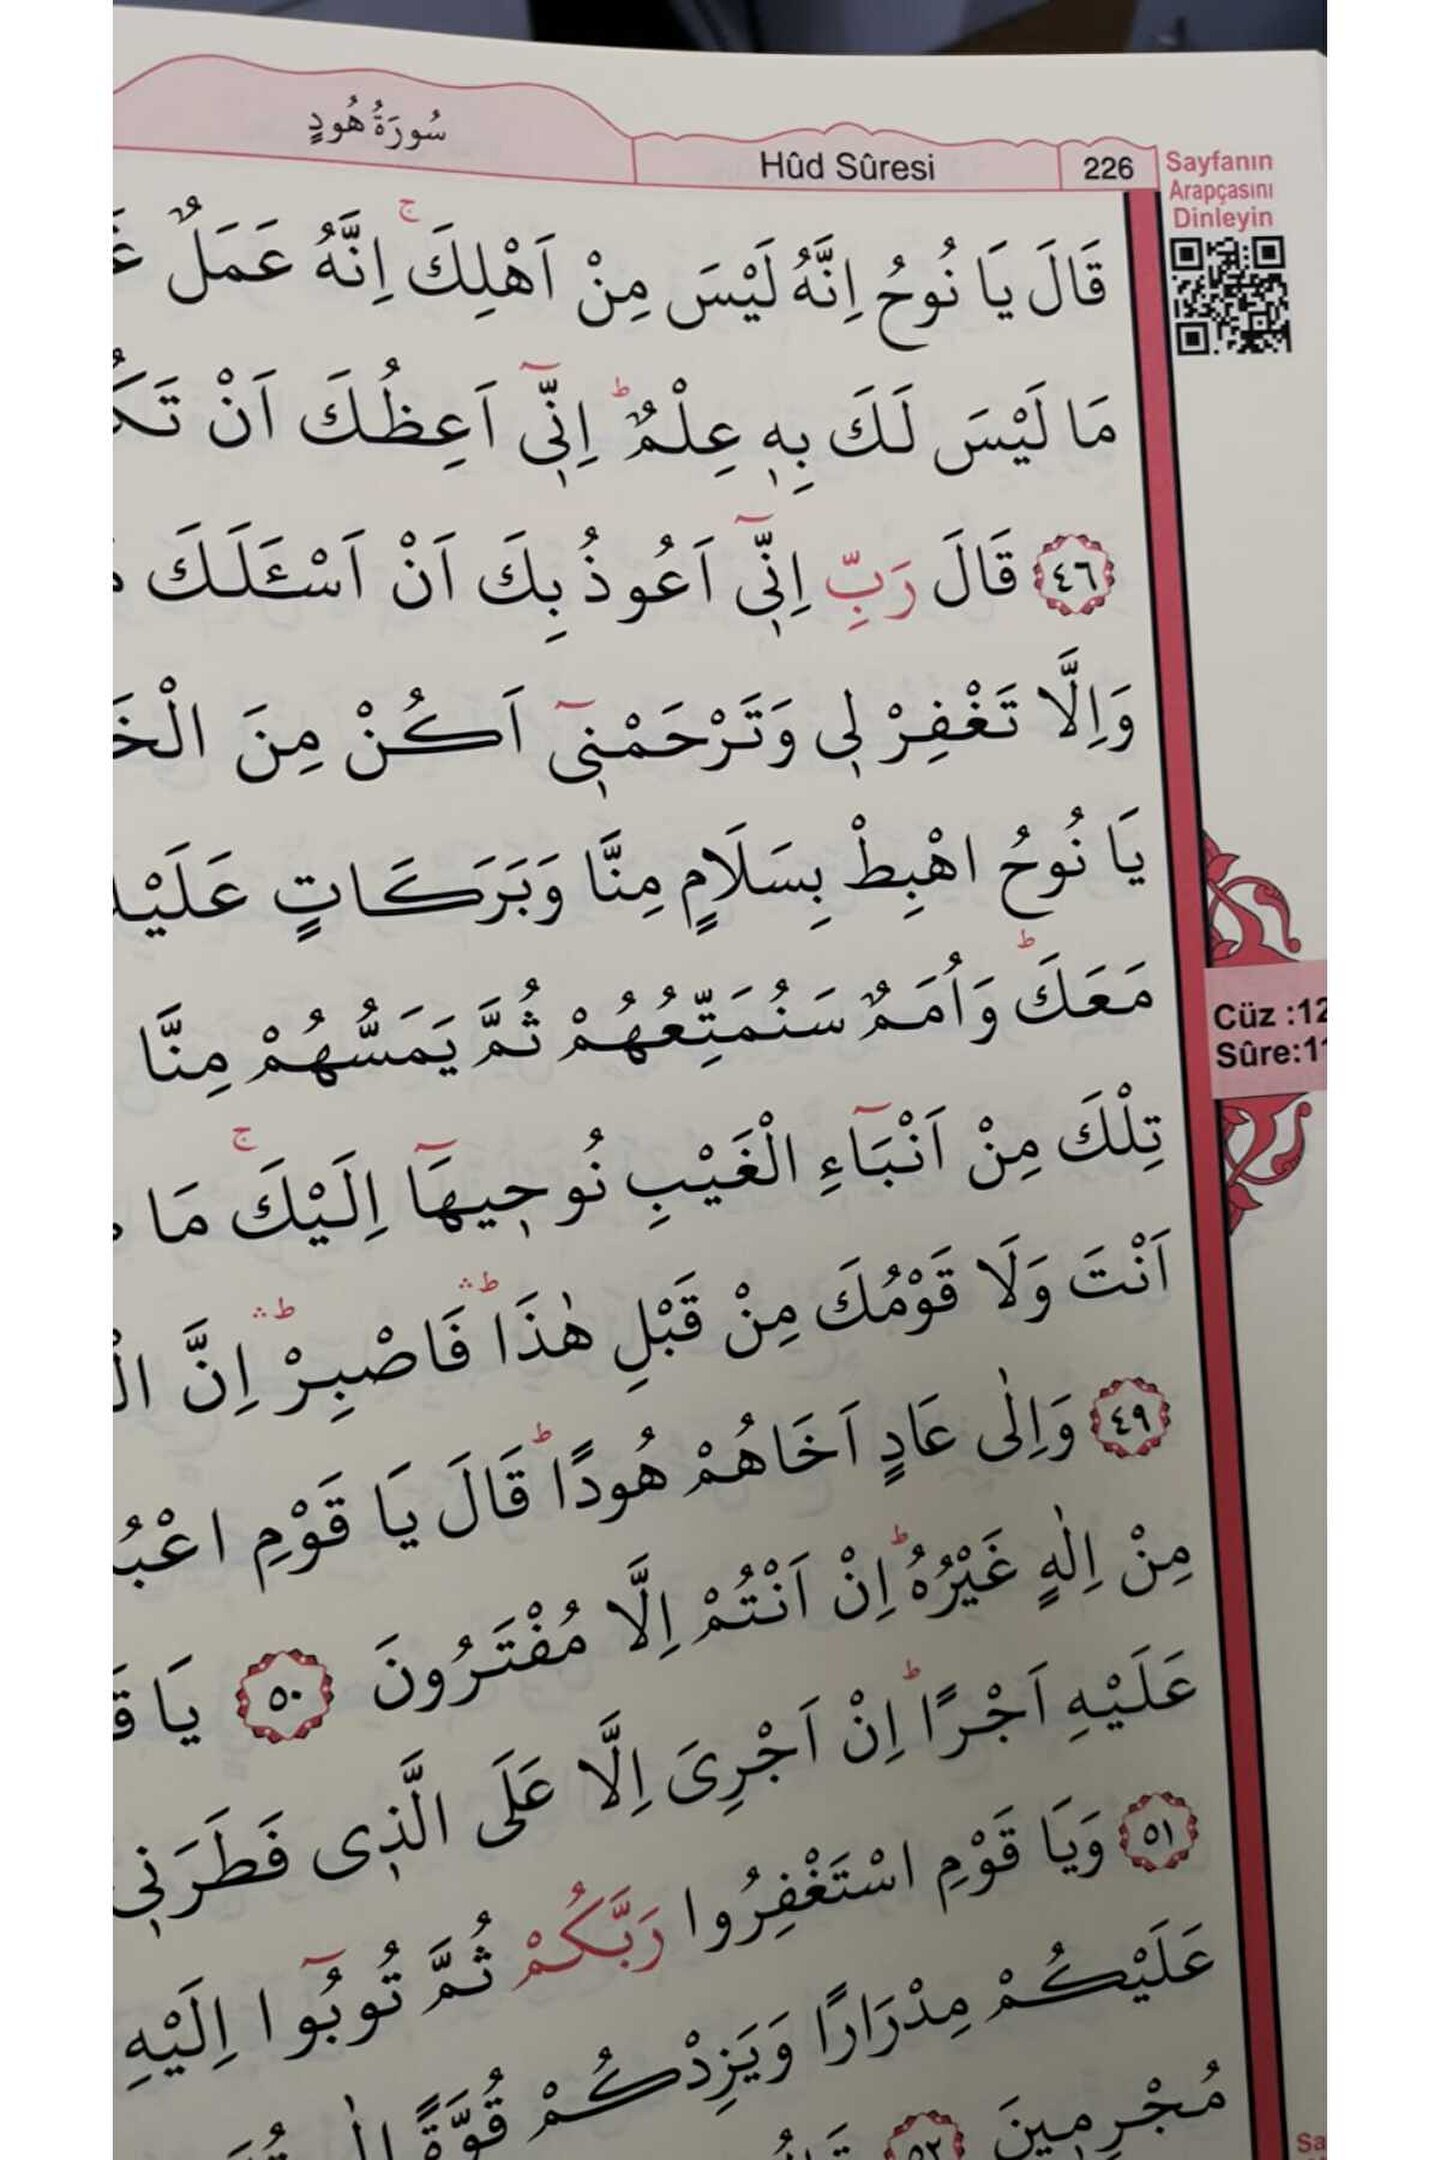 سُورَةُ هُودٍ
Hûd Sûresi
226
Sayfanın
Arapçasını
Dinleyin
قَالَ يَا نُوحُ اِنَّهُ لَيْسَ مِنْ اَهْلِكَۚ اِنَّهُ عَمَلٌ
مَا لَيْسَ لَكَ بِهٖ عِلْمٌؕ اِنّٖٓي اَعِظُكَ اَنْ
٤٦ قَالَ رَبِّ اِنّٖٓي اَعُوذُ بِكَ اَنْ اَسْـَٔلَكَ
وَاِلَّا تَغْفِرْ لٖي وَتَرْحَمْنٖٓي اَكُنْ مِنَ
يَا نُوحُ اهْبِطْ بِسَلَامٍ مِنَّا وَبَرَكَاتٍ
مَعَكَؕ وَاُمَمٌ سَنُمَتِّعُهُمْ ثُمَّ يَمَسُّهُمْ مِنَّا
Cüz :12
Sûre:11
تِلْكَ مِنْ اَنْبَٓاءِ الْغَيْبِ نُوحٖيهَٓا اِلَيْكَۚ مَا
اَنْتَ وَلَا قَوْمُكَ مِنْ قَبْلِ هٰذَاؕۛ فَاصْبِرْؕۛ اِنَّ
٤٩ وَاِلٰى عَادٍ اَخَاهُمْ هُودًاؕ قَالَ يَا قَوْمِ
مِنْ اِلٰهٍ غَيْرُهُؕ اِنْ اَنْتُمْ اِلَّا مُفْتَرُونَ ٥٠ يَا
عَلَيْهِ اَجْرًاؕ اِنْ اَجْرِيَ اِلَّا عَلَى الَّذٖي فَطَرَنٖي
٥١ وَيَا قَوْمِ اسْتَغْفِرُوا رَبَّكُمْ ثُمَّ تُوبُٓوا اِلَيْهِ
عَلَيْكُمْ مِدْرَارًا وَيَزِدْكُمْ قُوَّةً
مُجْرِمٖينَ ٥٢